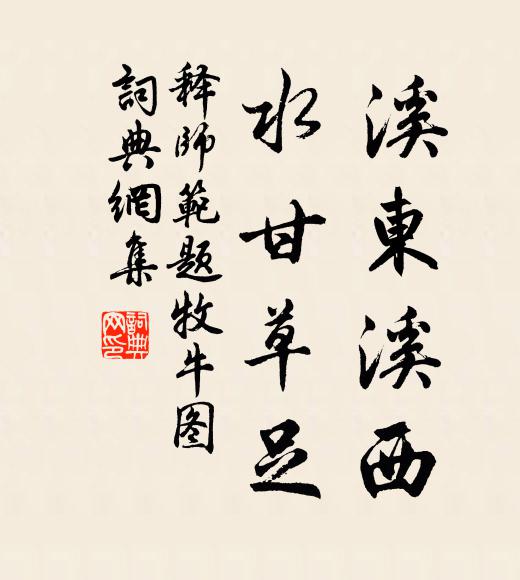 溪東溪西
水甘草足
释師範题牧牛图
詞典網集
詞典网印